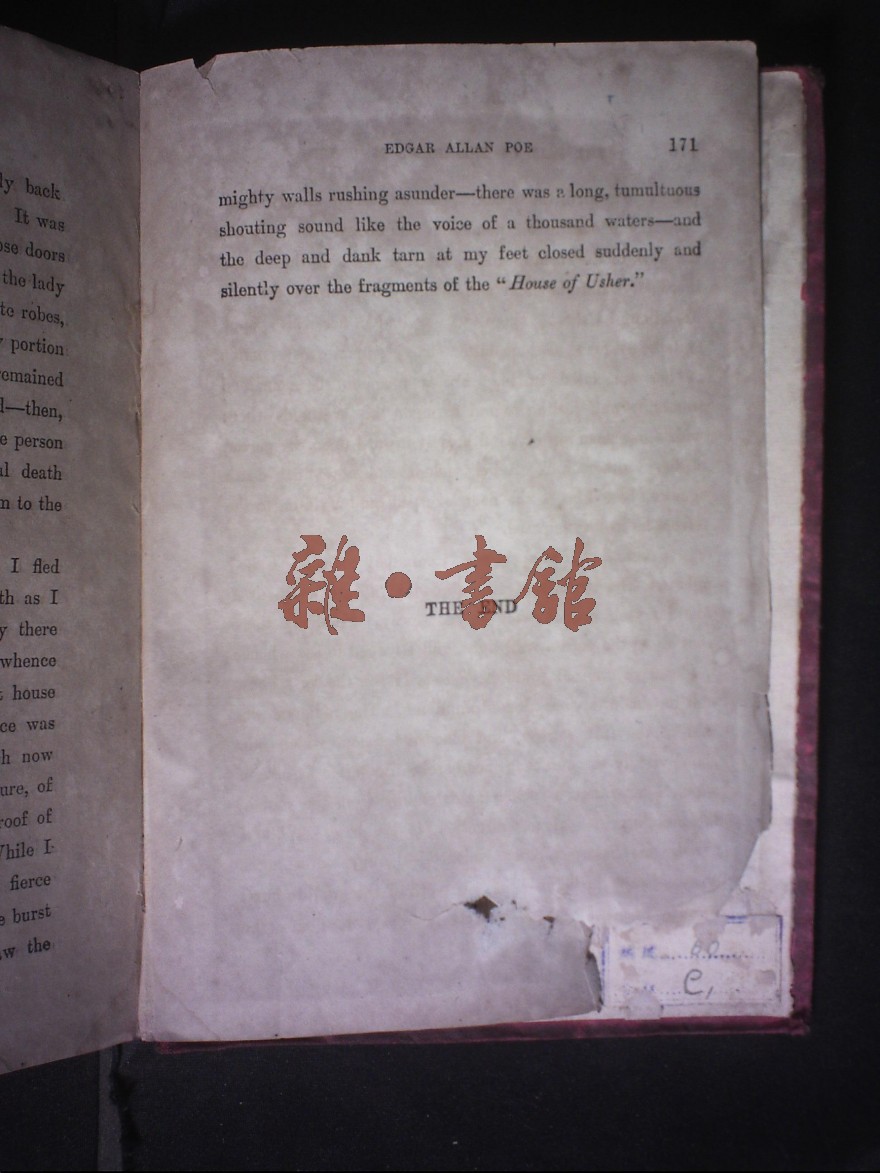 ly back
It was
ose doors
the lady
te robes,
portion
emained
l—then,
e person
al death
n to the
I fled
th as I
y there
whence
house
ce was
h now
ure, of
roof of
While I
fierce
e burst
w the
EDGAR ALLAN POE 171
mighty walls rushing asunder—there was a long, tumultuous
shouting sound like the voice of a thousand waters—and
the deep and dank tarn at my feet closed suddenly and
silently over the fragments of the “House of Usher.”
雜·書館
THE END
C,